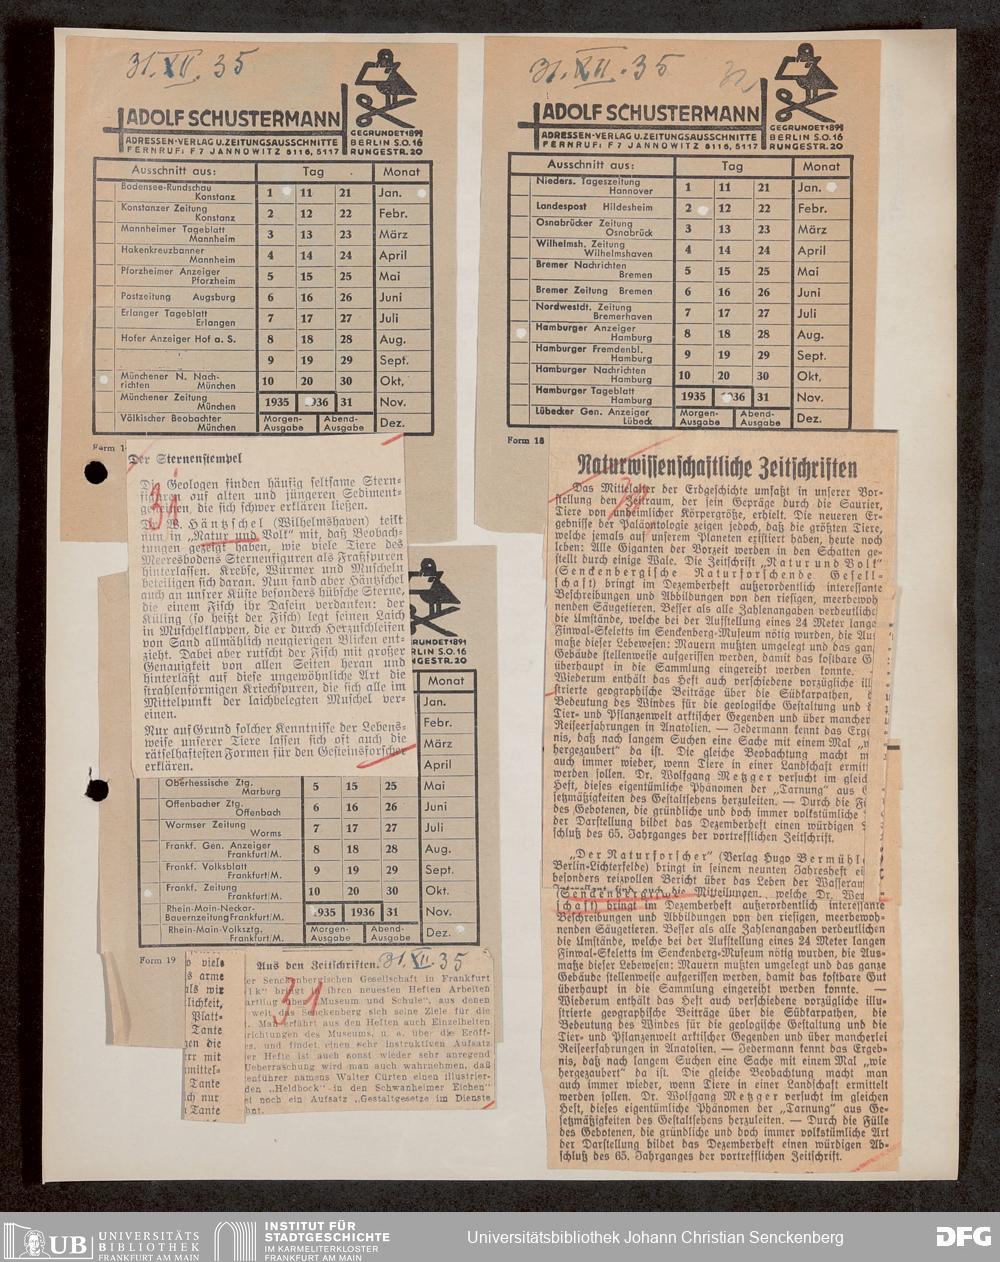 31.XII.35
ADOLF SCHUSTERMANN
ADRESSEN-VERLAG U. ZEITUNGSAUSSCHNITTE
FERNRUF: F7 JANNOWITZ 5116, 5117
GEGRUNDET 1891
BERLIN S.O.16
RUNGESTR. 20
Ausschnitt aus: Tag Monat
Bodensee-Rundschau Konstanz 1 11 21 Jan.
Konstanzer Zeitung Konstanz 2 12 22 Febr.
Mannheimer Tageblatt Mannheim 3 13 23 März
Hakenkreuzbanner Mannheim 4 14 24 April
Pforzheimer Anzeiger Pforzheim 5 15 25 Mai
Postzeitung Augsburg 6 16 26 Juni
Erlanger Tageblatt Erlangen 7 17 27 Juli
Hofer Anzeiger Hof a. S. 8 18 28 Aug.
9 19 29 Sept.
Münchener N. Nachrichten München 10 20 30 Okt.
Münchener Zeitung München 1935 36 31 Nov.
Völkischer Beobachter München Morgen-Ausgabe Abend-Ausgabe Dez.
31.XII.35
ADOLF SCHUSTERMANN
ADRESSEN-VERLAG U. ZEITUNGSAUSSCHNITTE
FERNRUF: F7 JANNOWITZ 5116, 5117
GEGRUNDET 1891
BERLIN S.O.16
RUNGESTR. 20
Ausschnitt aus: Tag Monat
Nieders. Tageszeitung Hannover 1 11 21 Jan.
Landespost Hildesheim 2 12 22 Febr.
Osnabrücker Zeitung Osnabrück 3 13 23 März
Wilhelmsh. Zeitung Wilhelmshaven 4 14 24 April
Bremer Nachrichten Bremen 5 15 25 Mai
Bremer Zeitung Bremen 6 16 26 Juni
Nordwestdt. Zeitung Bremerhaven 7 17 27 Juli
Hamburger Anzeiger Hamburg 8 18 28 Aug.
Hamburger Fremdenbl. Hamburg 9 19 29 Sept.
Hamburger Nachrichten Hamburg 10 20 30 Okt.
Hamburger Tageblatt Hamburg 1935 36 31 Nov.
Lübecker Gen. Anzeiger Lübeck Morgen-Ausgabe Abend-Ausgabe Dez.
Form 18
Der Sternenstempel
Die Geologen finden häufig seltsame Stern-
figuren auf alten und jüngeren Sediment-
gesteinen, die sich schwer erklären ließen.
W. Häntzschel (Wilhelmshaven) teilt
nun in „Natur und Volk“ mit, daß Beobach-
tungen gezeigt haben, wie viele Tiere des
Meeresbodens Sternenfiguren als Fraßspuren
hinterlassen. Krebse, Würmer und Muscheln
beteiligen sich daran. Nun fand aber Häntzschel
auch an unsrer Küste besonders hübsche Sterne,
die einem Fisch ihr Dasein verdanken: der
Küling (so heißt der Fisch) legt seinen Laich
in Muschelklappen, die er durch Herzuschleifen
von Sand allmählich neugierigen Blicken ent-
zieht. Dabei aber rutscht der Fisch mit großer
Genauigkeit von allen Seiten heran und
hinterläßt auf diese ungewöhnliche Art die
strahlenförmigen Kriechspuren, die sich alle im
Mittelpunkt der laichbelegten Muschel ver-
einen.
Nur auf Grund solcher Kenntnisse der Lebens-
weise unserer Tiere lassen sich oft auch die
rätselhaftesten Formen für den Gesteinsforscher
erklären.
31
RUNDET 1891
RLIN S.O.16
NGESTR. 20
Monat
Jan.
Febr.
März
April
Oberhessische Ztg. Marburg 5 15 25 Mai
Offenbacher Ztg. Offenbach 6 16 26 Juni
Wormser Zeitung Worms 7 17 27 Juli
Frankf. Gen. Anzeiger Frankfurt/M. 8 18 28 Aug.
Frankf. Volksblatt Frankfurt/M. 9 19 29 Sept.
Frankf. Zeitung Frankfurt/M. 10 20 30 Okt.
Rhein-Main-Neckar-Bauernzeitung Frankfurt/M. 1935 1936 31 Nov.
Rhein-Main-Volksztg. Frankfurt/M. Morgen-Ausgabe Abend-Ausgabe Dez.
Form 19
o viele
s arme
als wir
lichkeit,
Platt-
Tante
en die
er mit
mittel-
Tante
ch nur
Tante
Aus den Zeitschriften. 31.XII.35
er Senckenbergischen Gesellschaft in Frankfurt
lk“ bringt in ihren neuesten Heften Arbeiten
artling über „Museum und Schule“, aus denen
weit das Senckenberg sich seine Ziele für die
t. Man erfährt aus den Heften auch Einzelheiten
richtungen des Museums, u. a. über die Eröff-
es, und findet einen sehr instruktiven Aufsatz
er Hefte ist auch sonst wieder sehr anregend
Ueberraschung wird man auch wahrnehmen, daß
enführer namens Walter Cürten einen illustrier-
den „Heldbock in den Schwanheimer Eichen“
et noch ein Aufsatz „Gestaltgesetze im Dienste
31
Naturwissenschaftliche Zeitschriften
Das Mittelalter der Erdgeschichte umfaßt in unserer Vor-
stellung den Zeitraum, der sein Gepräge durch die Saurier,
Tiere von unheimlicher Körpergröße, erhielt. Die neueren Er-
gebnisse der Paläontologie zeigen jedoch, daß die größten Tiere,
welche jemals auf unserem Planeten existiert haben, heute noch
leben: Alle Giganten der Vorzeit werden in den Schatten ge-
stellt durch einige Wale. Die Zeitschrift „Natur und Volk“
(Senckenbergische Naturforschende Gesell-
schaft) bringt im Dezemberheft außerordentlich interessante
Beschreibungen und Abbildungen von den riesigen, meerbewoh-
nenden Säugetieren. Besser als alle Zahlenangaben verdeutliche
die Umstände, welche bei der Aufstellung eines 24 Meter lange
Finwal-Skeletts im Senckenberg-Museum nötig wurden, die Aus
maße dieser Lebewesen: Mauern mußten umgelegt und das gan
Gebäude stellenweise aufgerissen werden, damit das kostbare G
überhaupt in die Sammlung eingereiht werden konnte.
Wiederum enthält das Heft auch verschiedene vorzügliche ill
strierte geographische Beiträge über die Südkarpathen,
Bedeutung des Windes für die geologische Gestaltung und
Tier- und Pflanzenwelt arktischer Gegenden und über mancher
Reiseerfahrungen in Anatolien. — Jedermann kennt das Erge
nis, daß nach langem Suchen eine Sache mit einem Mal „w
hergezaubert“ da ist. Die gleiche Beobachtung macht m
auch immer wieder, wenn Tiere in einer Landschaft ermit
werden sollen. Dr. Wolfgang Metzger versucht im gleich
Heft, dieses eigentümliche Phänomen der „Tarnung“ aus
setzmäßigkeiten des Gestaltsehens herzuleiten. — Durch die Fü
des Gebotenen, die gründliche und doch immer volkstümliche
der Darstellung bildet das Dezemberheft einen würdigen
schluß des 65. Jahrganges der vortrefflichen Zeitschrift.
„Der Naturforscher“ (Verlag Hugo Bermühl
Berlin-Lichterfelde) bringt in seinem neunten Jahresheft ei
besonders reizvollen Bericht über das Leben der Wasseram
die Mitteilungen, welche Dr.
schaft) bringt im Dezemberheft außerordentlich interessante
Beschreibungen und Abbildungen von den riesigen, meerbewoh-
nenden Säugetieren. Besser als alle Zahlenangaben verdeutlichen
die Umstände, welche bei der Aufstellung eines 24 Meter langen
Finwal-Skeletts im Senckenberg-Museum nötig wurden, die Aus-
maße dieser Lebewesen: Mauern mußten umgelegt und das ganze
Gebäude stellenweise aufgerissen werden, damit das kostbare Gut
überhaupt in die Sammlung eingereiht werden konnte. —
Wiederum enthält das Heft auch verschiedene vorzügliche illu-
strierte geographische Beiträge über die Südkarpathen, die
Bedeutung des Windes für die geologische Gestaltung und die
Tier- und Pflanzenwelt arktischer Gegenden und über mancherlei
Reiseerfahrungen in Anatolien. — Jedermann kennt das Ergeb-
nis, daß nach langem Suchen eine Sache mit einem Mal „wie
hergezaubert“ da ist. Die gleiche Beobachtung macht man
auch immer wieder, wenn Tiere in einer Landschaft ermittelt
werden sollen. Dr. Wolfgang Metzger versucht im gleichen
Heft, dieses eigentümliche Phänomen der „Tarnung“ aus Ge-
setzmäßigkeiten des Gestaltsehens herzuleiten. — Durch die Fülle
des Gebotenen, die gründliche und doch immer volkstümliche Art
der Darstellung bildet das Dezemberheft einen würdigen Ab-
schluß des 65. Jahrganges der vortrefflichen Zeitschrift.
UB UNIVERSITÄTS BIBLIOTHEK FRANKFURT AM MAIN
INSTITUT FÜR STADTGESCHICHTE IM KARMELITERKLOSTER FRANKFURT AM MAIN
Universitätsbibliothek Johann Christian Senckenberg
DFG